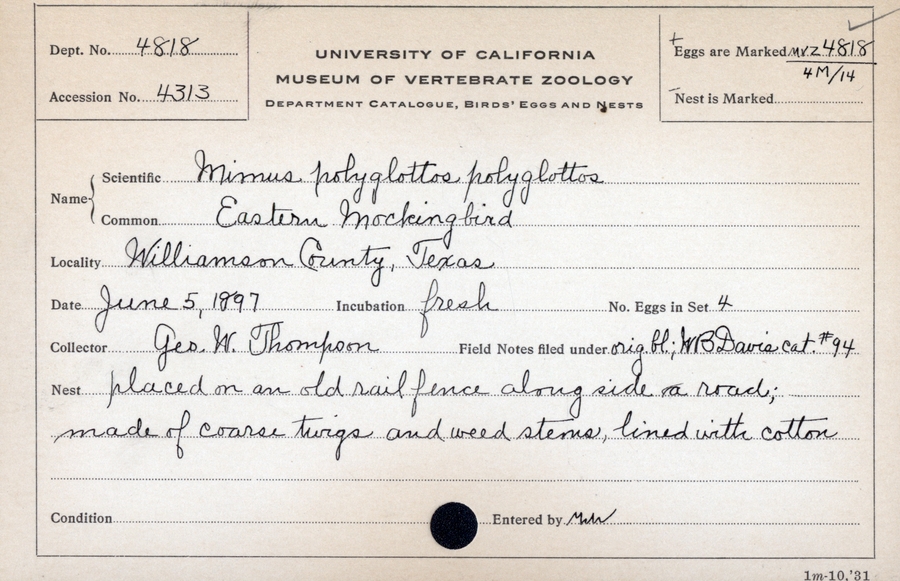 Dept. No. 4818
Accession No. 4313
UNIVERSITY OF CALIFORNIA
MUSEUM OF VERTEBRATE ZOOLOGY
DEPARTMENT CATALOGUE, BIRDS' EGGS AND NESTS
+ Eggs are Marked MVZ 4818
4M/14
- Nest is Marked
Name
Scientific Mimus polyglottos polyglottos
Common Eastern Mockingbird
Locality Williamson County, Texas
Date June 5, 1897 Incubation fresh No. Eggs in Set 4
Collector Geo. W. Thompson Field Notes filed under orig. bl.; WB Davis cat. #94
Nest placed on an old rail fence along side a road;
made of coarse twigs and weed stems, lined with cotton
Condition Entered by
1m-10,'31